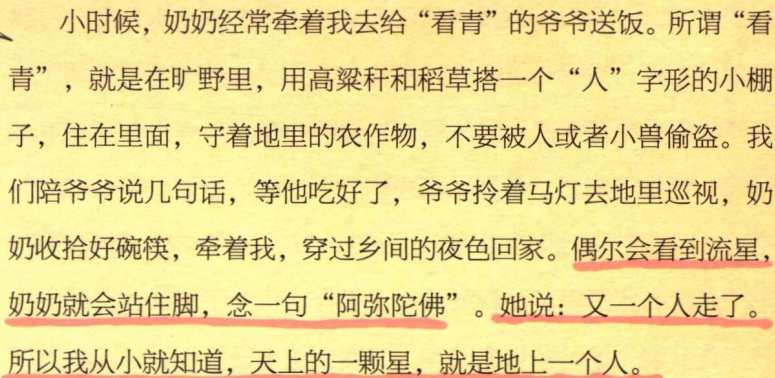 小时候，奶奶经常牵着我去给“看青”的爷爷送饭。所谓“看
青”，就是在旷野里，用高粱秆和稻草搭一个“人”字形的小棚
子，住在里面，守着地里的农作物，不要被人或者小兽偷盗。我
们陪爷爷说几句话，等他吃好了，爷爷拎着马灯去地里巡视，奶
奶收拾好碗筷，牵着我，穿过乡间的夜色回家。偶尔会看到流星，
奶奶就会站住脚，念一句“阿弥陀佛”。她说：又一个人走了。
所以我从小就知道，天上的一颗星，就是地上一个人。